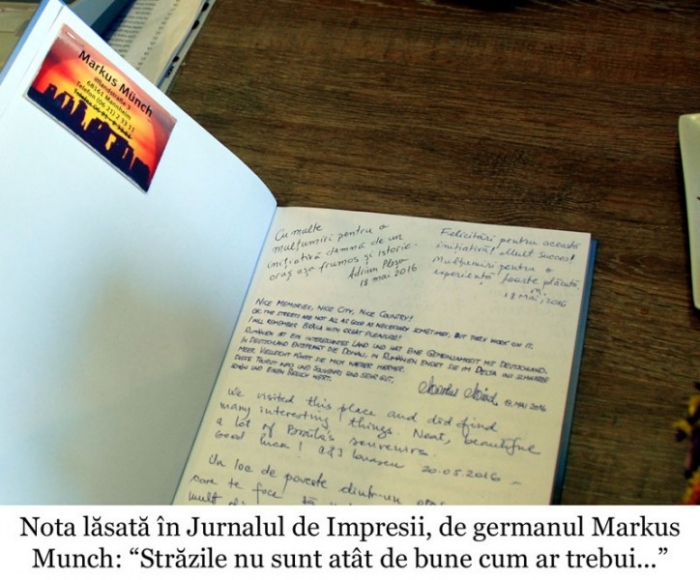 Markus Münch
68165 Mannheim
Cu multe
mulțumiri pentru o
inițiativă demnă de un
oraș așa frumos și istoric.
Adrian
18 mai 2016
Felicitări pentru această
inițiativă! Mult succes!
Mulțumiri pentru o
experiență foarte plăcută.
18 mai, 2016
NICE MEMORIES, NICE CITY, NICE COUNTRY!
OK, THE STREETS ARE NOT ALL AS GOOD AS NECESSARY SOMETIMES, BUT THEY WORK ON IT.
I WILL REMEMBER BRĂILA WITH GREAT PLEASURE!
RUMÄNIEN IST EIN INTERESSANTES LAND UND HAT EINE GEMEINSAMKEIT MIT DEUTSCHLAND.
IN DEUTSCHLAND ENTSPRINGT DIE DONAU, IN RUMÄNIEN ENDET SIE IM DELTA INS SCHWARZE
MEER. VIELLEICHT FÜHRT SIE MICH WIEDER HIERHER.
DIESE TOURIST INFO UND SOUVENIRS SIND SEHR GUT,
SCHÖN UND EINEN BESUCH WERT.
18. MAI 2016
We visited this place and did find
many interesting things. Neat, beautiful
a lot of Brăila's souvenirs.
Good luck! 20.05.2016 -
Un loc de poveste dintr-un oraș
care te face să
mult
Nota lăsată în Jurnalul de Impresii, de germanul Markus
Munch: “Străzile nu sunt atât de bune cum ar trebui...”